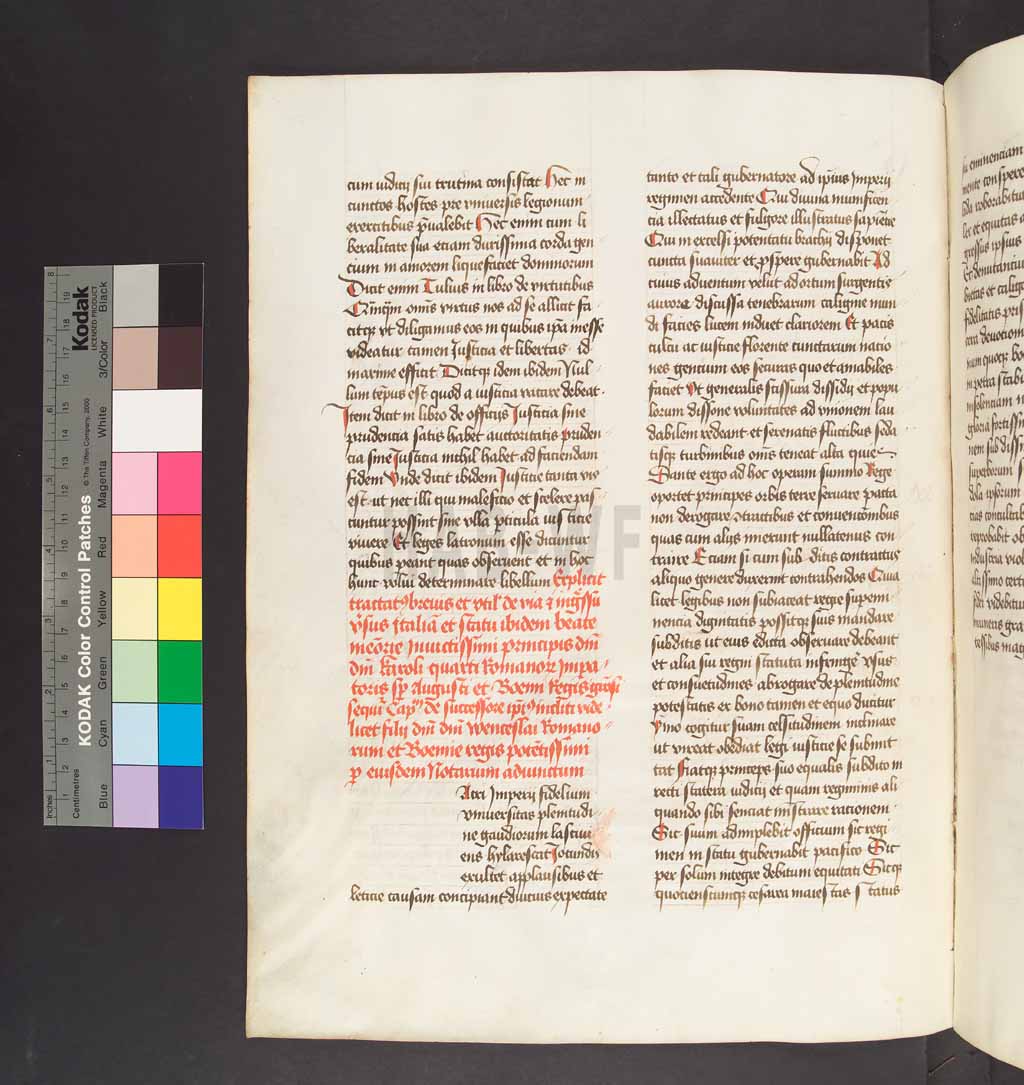 cum iudicij sui trutina consistat Hec in
cunctos hostes pre vniuersis legionum
exercitibus p̄ualebit Hec enim cum li
beralitate sua etiam durissima corda gen
cium in amorem liquefaciet dominorum
Dicit enim Tulius in libro de virtutibus
Q̄mq̄m om̄is virtus nos ad se allicit fa
citq; vt diligamus eos in quibus ip̄a inesse
videatur tamen Justicia et libertas id
maxime efficit Dicitq; idem ibidem Nul
lum tēpus est quod a iusticia vacare debeat
Item dicit in libro de officijs Justicia sine
prudencia satis habet auctoritatis pruden
cia sine Justicia nichil habet ad faciendam
fidem Vnde dicit ibidem Justicie tanta vis
est ut nec illi qui maleficio et scelere pas
cuntur possint sine vlla p̄ticula iusticie
viuere Et leges latronum esse dicuntur
quibus peant quas obseruent et in hoc
hunc volui determinare libellum Explicit
tractatꝰ breuis et vtil' de via ⁊ inḡssu
v̄sus Italiā et statu ibidem beate
meōrie Inuictissimi principis dn̄i
dn̄i Karoli quarti Romanoꝝ Impa
toris sp̄ Augusti et Boemi Regis
sequit̄ Cap̄ de successore ip̄iꝰ incliti vide
licet filij dn̄i dn̄i wenceslai Romano
rum et Boemie regis potētissimi
ꝑ eiusdem Notarum adiunctum
Acri Imperij fidelium
vniuersitas plenitudi
ne gaudiorum lasciui
ens hylarescat Jocundis
exultet applausibus et
leticie causam concipiant diucius expectate
tanto et tali gubernatore ad ip̄ius Imperij
regimen accedente Qui diuina munificen
cia illectatus et fulgore illustratus sapiētie
Qui in excelsi potentatu brachij disponet
cuncta suauiter et ꝓspere gubernabit Ad
cuius aduentum velut ad ortum surgentis
aurora discussa tenebrarum caligine mun
di facies lucem induet clariorem Et pacis
cultu ac iusticie florente cunctarum nacio
nes gentium eos securas quo et amabiles
faciet Vt generalis scissura dissidij et popu
lorum dissone voluntates ad vnionem lau
dabilem redeant et serenatis fluctibus seda
tisq; turbinibus om̄s teneat alta quies
Dante ergo ad hoc operam summo Rege
oportet principes orbis terre seruare pacta
non derogare ꝯtractibus et conuencōnibus
quas cum alijs inierunt nullatenus con
traire Etiam si cum sub ditis contractus
aliquo genere duxerint contrahendos Quia
licet legibus non subiaceat regie supemi
nencia dignitatis possitq; suis mandare
subditis ut eius edicta obseruare debeant
et alia sui regni statuta infringe v̄sus
et consuetudines abrogare de plenitudine
potestatis ex bono tamen et equo ducitur
ymo cogitur suam celsitudinem inclinare
ut viuat obediat legi iusticie se submit
tat fiatq; princeps suo equalis subdito in
recti statera iudicij et quam regiminis ali
quando sibi senciat mīstrare racionem
Sic suum adimplebit officium sic regi
men in statu gubernabit pacifico Sic
per solum integre debitum equitati Sicq;
quocienscumq; cesarea maiestas statūs
Kodak
LICENSED PRODUCT
KODAK Color Control Patches
© The Tiffen Company, 2000
Black
3/Color
White
Magenta
Red
Yellow
Green
Cyan
Blue
Inches
Centimetres